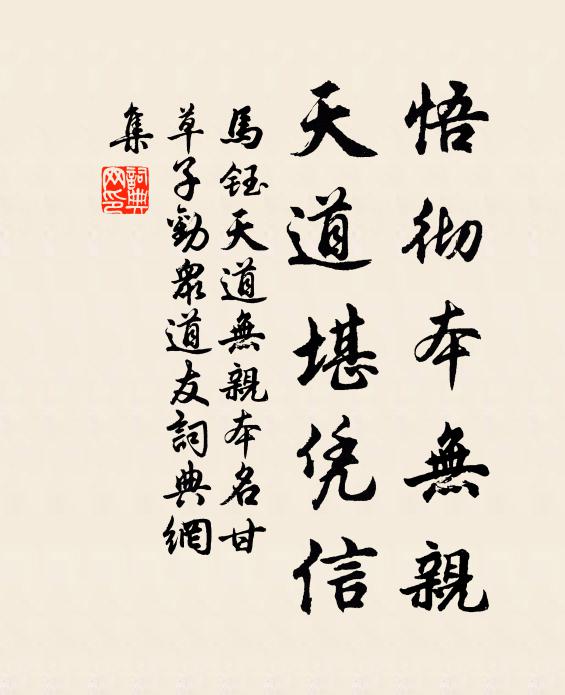 悟彻本無親
天道堪凭信
馬鈺天道無親本名甘
草子勸衆道友詞典網
集
詞典
网印